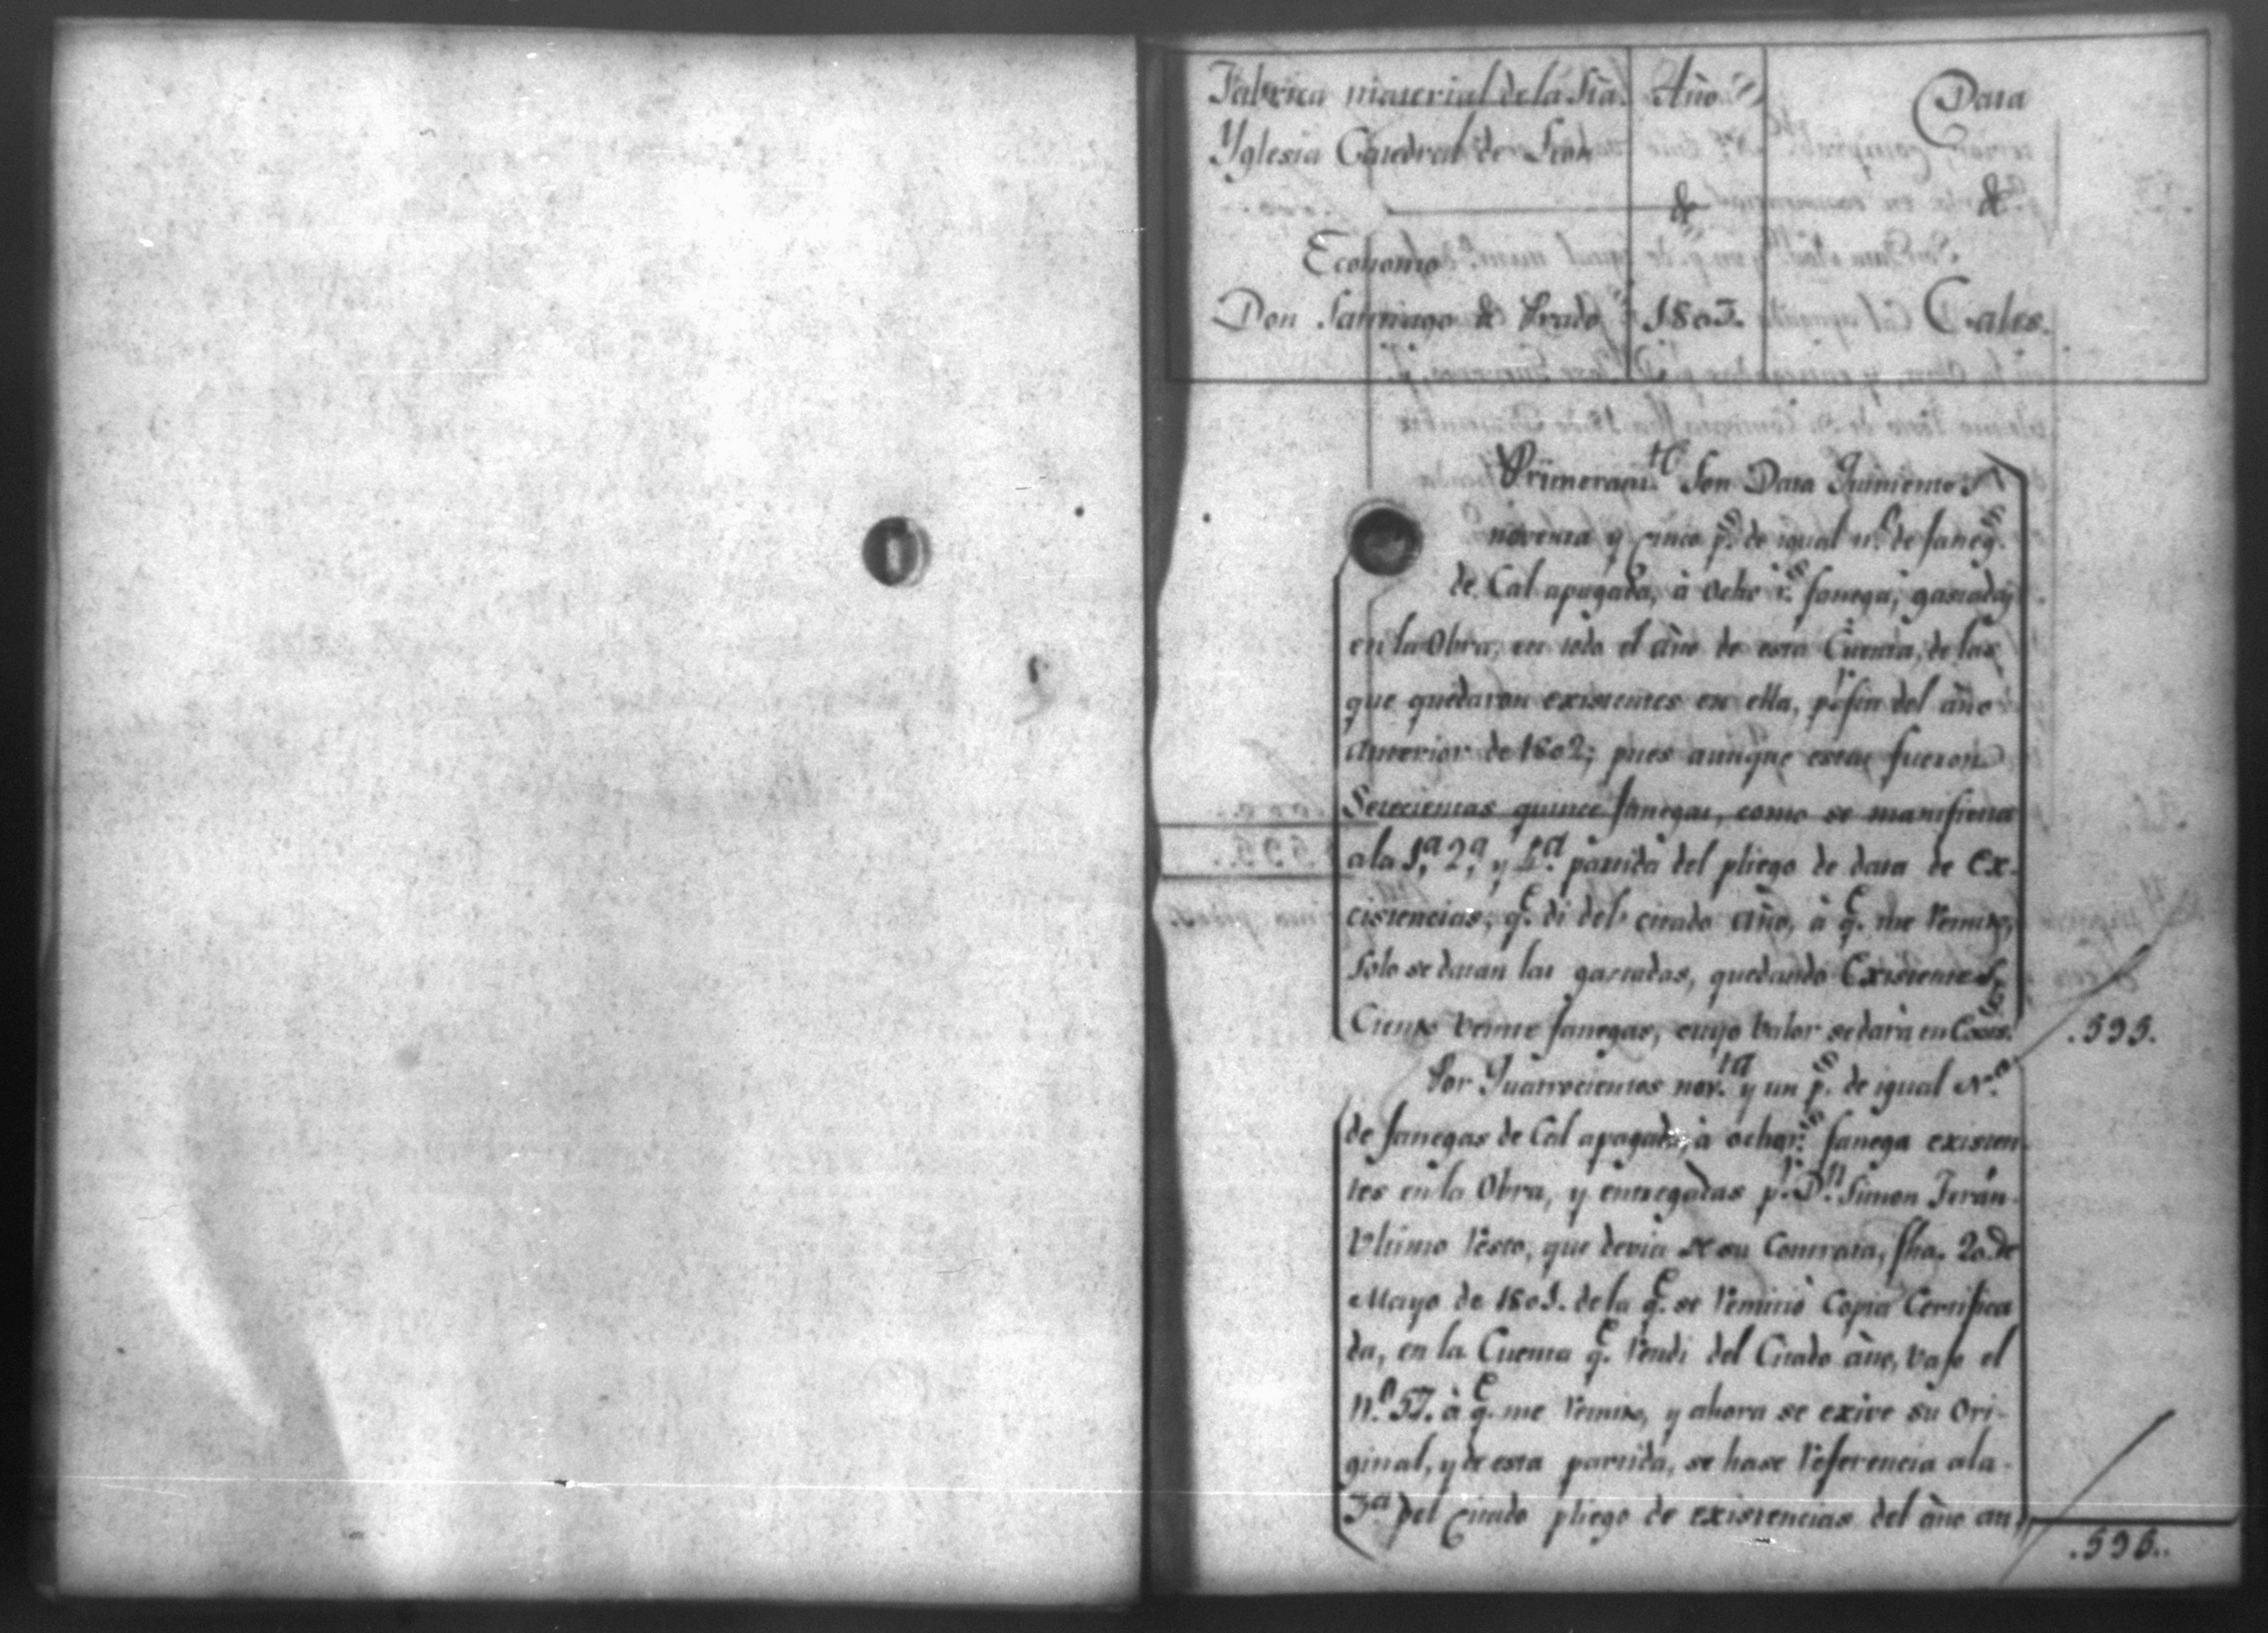 Fabrica material de la Sta. Año Data
Yglesia Catedral de Leon
de de
Economo
Don Santiago de Prado 1803. Cales.
Primeramte. Son Data Quinientos
noventa y cinco ps. de igual no. de fanegs.
de Cal apagada, à ocho rs. fanega, gastadas
en la Obra, en todo el año de esta Cuenta, de las
que quedaron existentes en ella, pr. fin del año
anterior de 1802; pues aunque estas fueron
Setecientas quince fanegas, como se manifiesta
a la 1a, 2a, y 4a. partida del pliego de data de Ex-
cistencias, qe. di del citado año, à qe. me remito,
solo se datan las gastadas, quedando Existentes
Ciento veinte fanegas, cuyo valor se darà en Excis. .595.
Por Quatrocientos novta. y un ps. de igual No.
de fanegas de Cal apagada, à ocho rs. fanega existen-
tes en la Obra, y entregadas pr. Dn. Simon Teràn
Ultimo resto, que devia de su Contrata, fha. 20. de
Mayo de 1801. de la qe. se remitiò Copia Certifica
da, en la Cuenta qe. rendi del Citado año, vajo el
No. 57. à qe. me remito, y ahora se exive su Ori-
ginal, y de esta partida, se hase referencia a la
3a del Citado pliego de existencias del año an
.595..